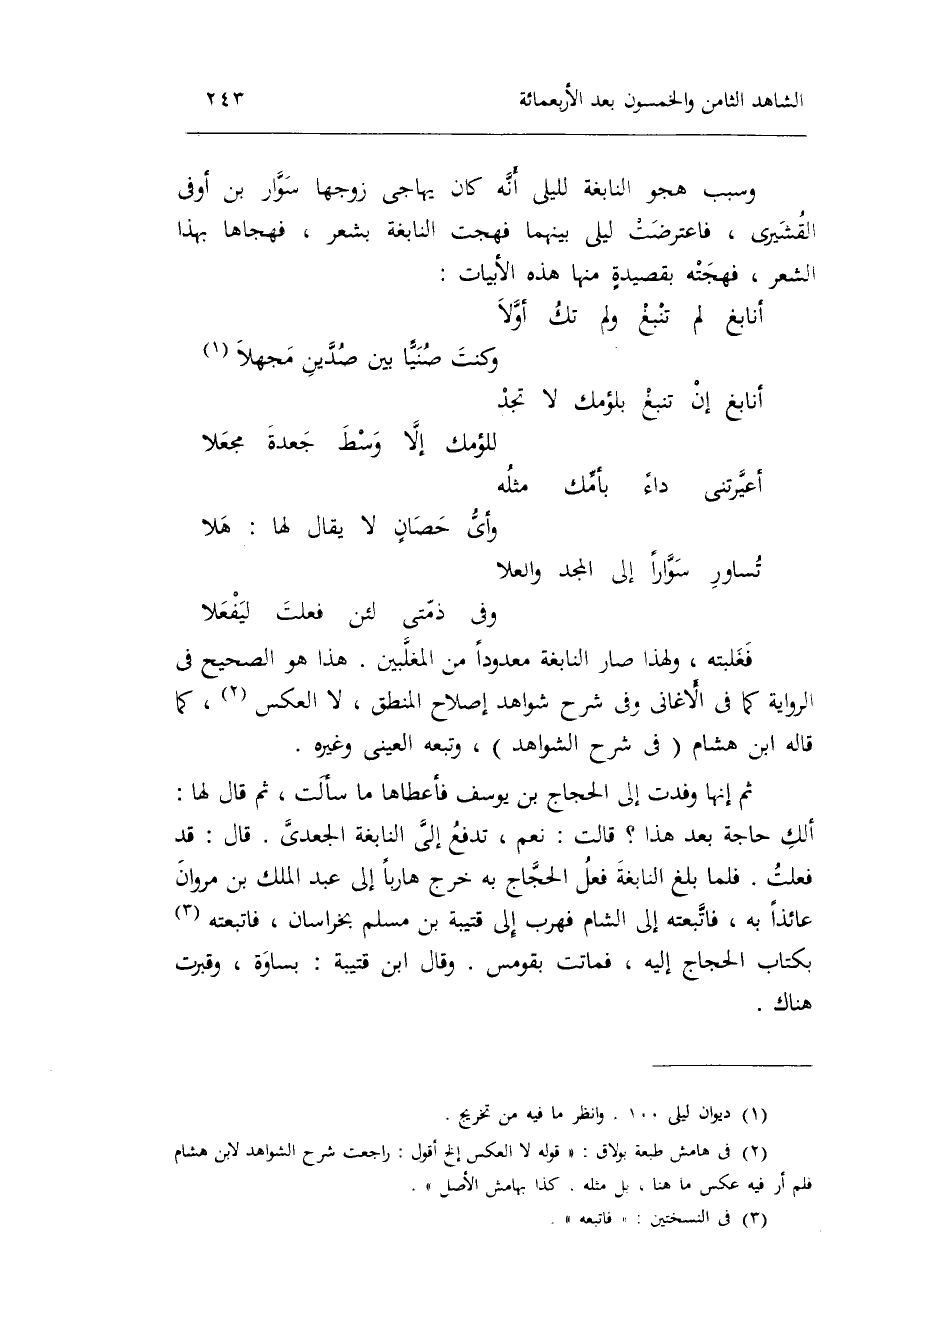 الشاهد الثامن والخمسون بعد الأربعمائة ٢٤٣
وسبب هجو النابغة لليلى أنَّه كان يهاجى زوجها سَوَّار بن أوفى
القُشَيرى ، فاعترضَتْ ليلى بينهما فهجت النابغة بشعر ، فهجاها بهذا
الشعر ، فهجَتْه بقصيدةٍ منها هذه الأبيات :
أنابغ لم تنْبغْ ولم تكُ أوَّلاَ
وكنتَ صُنَيًّا بين صُدَّينِ مَجهلاَ (١)
أنابغ إنْ تنبغْ بلؤمك لا تجدْ
للؤمك إلَّا وَسْطَ جَعدةَ مجعَلا
أعيَّرتنى داءً بأمِّك مثلُه
وأىُّ حَصَانٍ لا يقال لها : هَلا
تُساورِ سَوَّاراً إلى المجد والعلا
وفى ذمّتى لئن فعلتَ ليَفْعَلا
فَغَلبته ، ولهذا صار النابغة معدوداً من المغلَّبين . هذا هو الصحيح فى
الرواية كما فى الأغانى وفى شرح شواهد إصلاح المنطق ، لا العكس (٢) ، كما
قاله ابن هشام ( فى شرح الشواهد ) ، وتبعه العينى وغيره .
ثم إنها وفدت إلى الحجاج بن يوسف فأعطاها ما سألَت ، ثم قال لها :
ألكِ حاجة بعد هذا ؟ قالت : نعم ، تدفعُ إلىَّ النابغة الجعدىَّ . قال : قد
فعلتُ . فلما بلغ النابغةَ فعلُ الحجَّاج به خرج هارباً إلى عبد الملك بن مروانَ
عائذاً به ، فاتَّبعته إلى الشام فهرب إلى قتيبة بن مسلم بخراسان ، فاتبعته (٣)
بكتاب الحجاج إليه ، فماتت بقومس . وقال ابن قتيبة : بساوَة ، وقبرت
هناك .
(١) ديوان ليلى ١٠٠ . وانظر ما فيه من تخريج .
(٢) فى هامش طبعة بولاق : « قوله لا العكس إلخ أقول : راجعت شرح الشواهد لابن هشام
فلم أر فيه عكس ما هنا ، بل مثله . كذا بهامش الأصل » .
(٣) فى النسختين : « فاتبعه » .